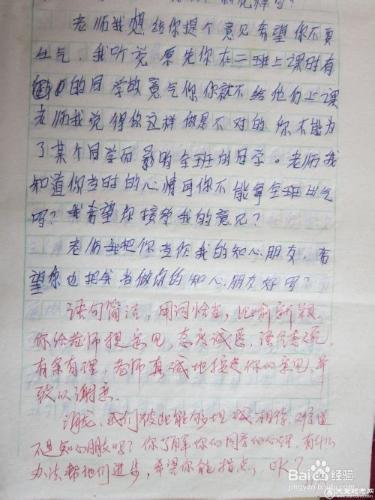 老师我想给你提个意见希望你不要
生气。我听说原先你在二班上课时有
的同学的气你你就不给他们上课
老师我觉得你这样做是不对的你不能为
了某个同学而影响全班的同学。老师我
知道你当时的心情可你不能拿全班出气
吗?我希望你接受我的意见?
老师我把你当作我的知心朋友,希
望你也把我当做你的知心朋友好吗?
语句简洁,用词恰当,比前新颖。
你给老师提意见,态度诚恳,语气委婉,
有条有理,老师真诚地接受你的意见,并
致以谢意。
谢谢,我们彼此能够坦诚相待,难道
不是知心朋友吗?你了解你们同学的心理,有什么
办法帮他们进步,希望你能指点,OK?
Baidu经验
jingyan.baidu.com